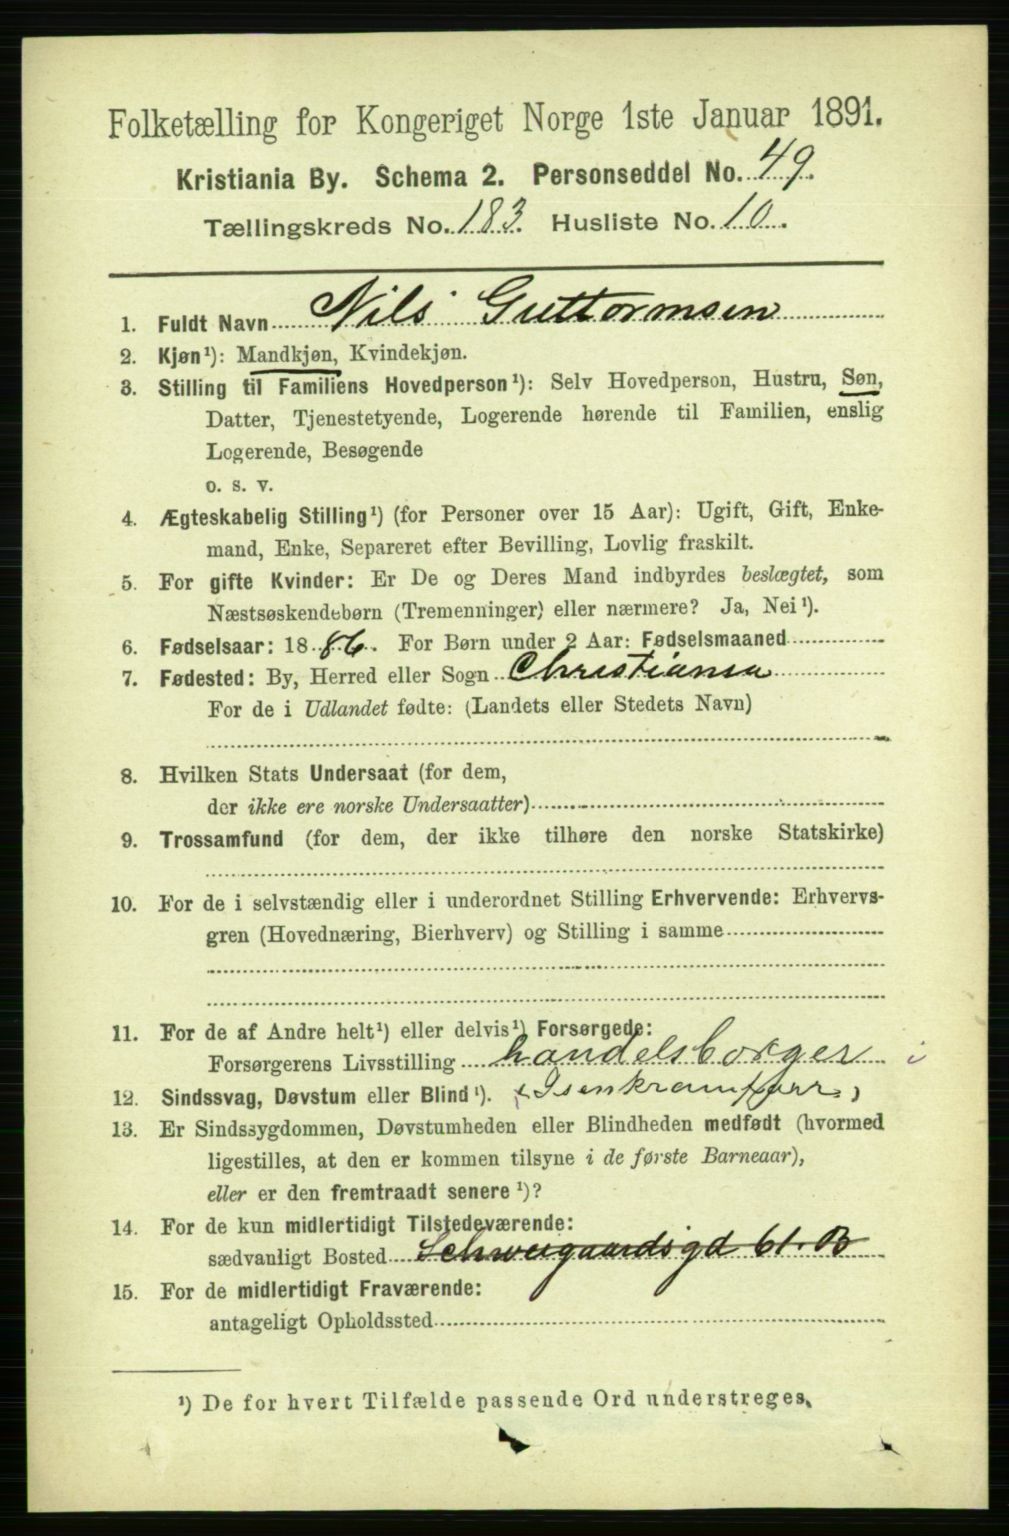 Folketælling for Kongeriget Norge 1ste Januar 1891.
Kristiania By. Schema 2. Personseddel No. 49.
Tællingskreds No. 183. Husliste No. 10.
1. Fuldt Navn Nils Guttormsen
2. Kjøn¹): Mandkjøn, Kvindekjøn.
3. Stilling til Familiens Hovedperson¹): Selv Hovedperson, Hustru, Søn,
Datter, Tjenestetyende, Logerende hørende til Familien, enslig
Logerende, Besøgende
o. s. v.
4. Ægteskabelig Stilling¹) (for Personer over 15 Aar): Ugift, Gift, Enke-
mand, Enke, Separeret efter Bevilling, Lovlig fraskilt.
5. For gifte Kvinder: Er De og Deres Mand indbyrdes beslægtet, som
Næstsøskendebørn (Tremenninger) eller nærmere? Ja, Nei¹).
6. Fødselsaar: 1886. For Børn under 2 Aar: Fødselsmaaned
7. Fødested: By, Herred eller Sogn Christiania
For de i Udlandet fødte: (Landets eller Stedets Navn)
8. Hvilken Stats Undersaat (for dem,
der ikke ere norske Undersaatter)
9. Trossamfund (for dem, der ikke tilhøre den norske Statskirke)
10. For de i selvstændig eller i underordnet Stilling Erhvervende: Erhvervs-
gren (Hovednæring, Bierhverv) og Stilling i samme
11. For de af Andre helt¹) eller delvis¹) Forsørgede:
Forsørgerens Livsstilling handelsborger i
12. Sindssvag, Døvstum eller Blind¹). (Isenkramforr.)
13. Er Sindssygdommen, Døvstumheden eller Blindheden medfødt (hvormed
ligestilles, at den er kommen tilsyne i de første Barneaar),
eller er den fremtraadt senere¹)?
14. For de kun midlertidigt Tilstedeværende:
sædvanligt Bosted Schweigaardsgd 61. B
15. For de midlertidigt Fraværende:
antageligt Opholdssted
¹) De for hvert Tilfælde passende Ord understreges.